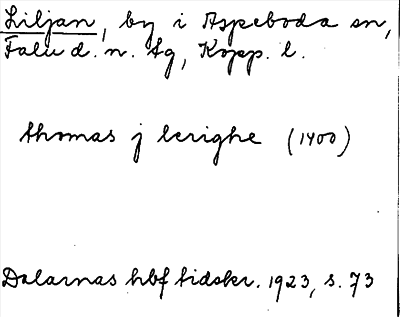 Liljan, by i Aspeboda sn,
Falu d. n. tg, Kopp. l.
thomas j lerighe (1400)
Dalarnas hbf tidskr. 1923, s. 73